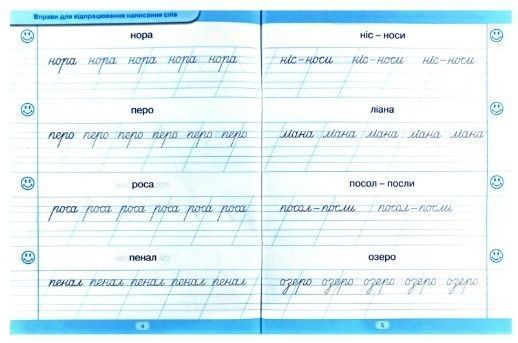 Вправи для відпрацювання написання слів
нора
нора нора нора нора нора
перо
перо перо перо перо перо перо
роса
роса роса роса роса роса роса
пенал
пенал пенал пенал пенал пенал
4
ніс – носи
ніс–носи ніс–носи ніс–носи
ліана
ліана ліана ліана ліана ліана
посол – посли
посол–посли посол–посли
озеро
озеро озеро озеро озеро озеро
5